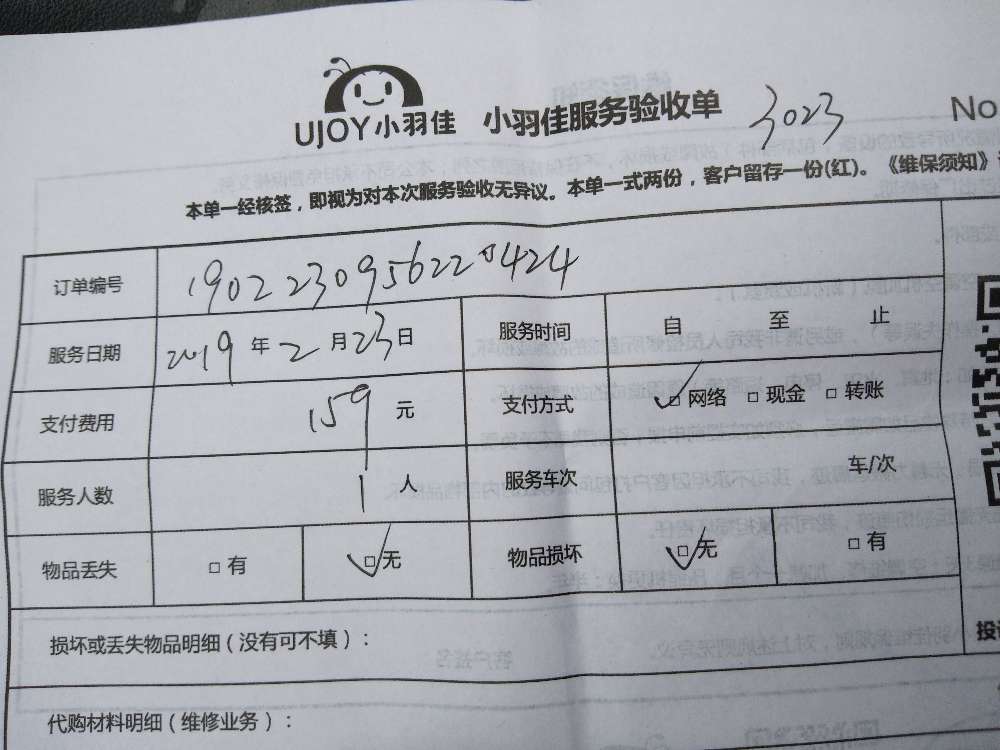 UJOY小羽佳 小羽佳服务验收单 3023 No
本单一经核签，即视为对本次服务验收无异议。本单一式两份，客户留存一份(红)。《维保须知》
订单编号 1902230956220424
服务日期 2019 年 2 月 23 日 服务时间 自 至 止
支付费用 159 元 支付方式 □网络 □现金 □转账
服务人数 1 人 服务车次 车/次
物品丢失 □有 □无 物品损坏 □无 □有
损坏或丢失物品明细（没有可不填）：
代购材料明细（维修业务）：